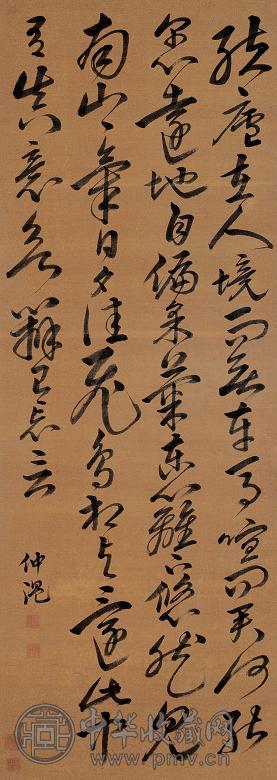 結廬在人境而無車馬喧問君何能
爾心遠地自偏采菊東籬下悠然見
南山山氣日夕佳飛鳥相与還此中
有真意欲辨已忘言
仲
中华收藏网
www.pmv.cn